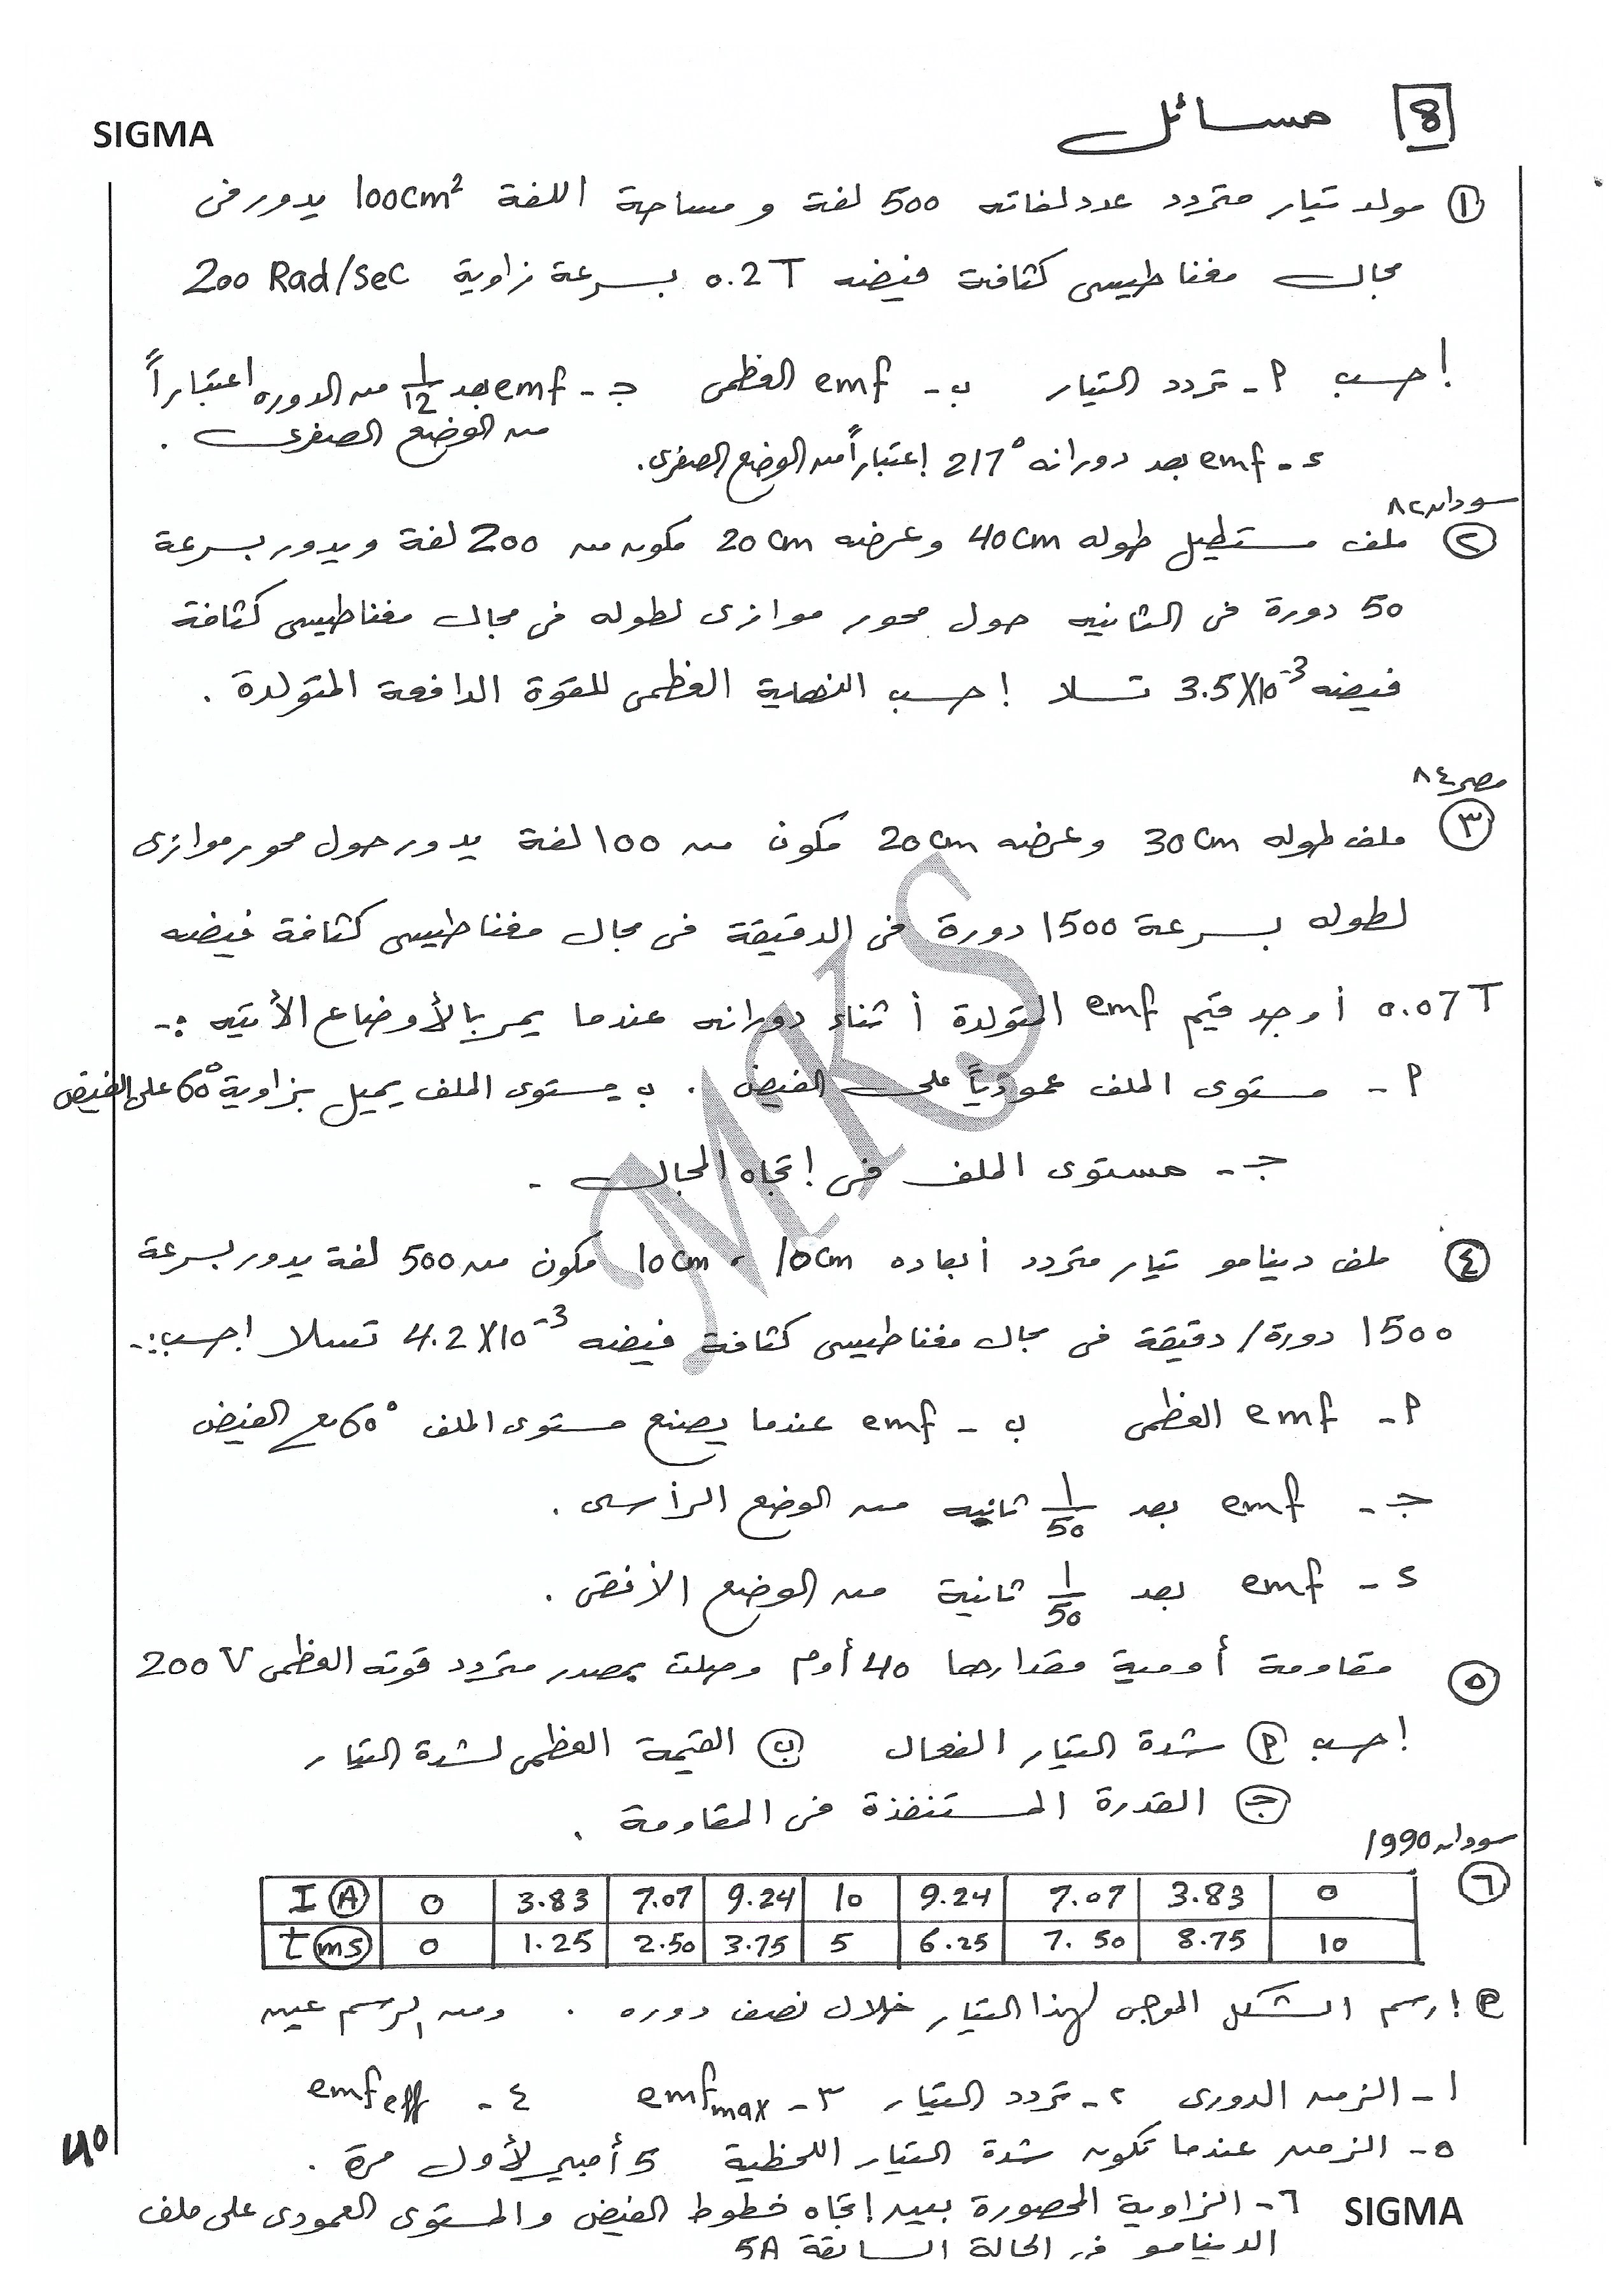 SIGMA
8 مسائل
① مولد تيار متردد عدد لفاته 500 لفة ومساحة اللفة 100cm² يدور فى
مجال مغناطيسى كثافة فيضه 0.2T بسرعة زاوية 200 Rad/Sec
احسب ٢- تردد التيار ب- emf العظمى جـ- emf بعد 1/12 من الدوره اعتباراً
من الوضع الصفرى .
د- emf بعد دورانه 217° إعتباراً من الوضع الصفرى.
سودان ٨٢
② ملف مستطيل طوله 40cm وعرضه 20cm مكون من 200 لفة ويدور بسرعة
50 دورة فى الثانيه حول محور موازى لطوله فى مجال مغناطيسى كثافة
فيضه 3.5X10⁻³ تسلا احسب النهاية العظمى للقوة الدافعة المتولدة .
مصر ٨٤
③ ملف طوله 30cm وعرضه 20cm مكون من 100 لفة يدور حول محور موازى
لطوله بسرعة 1500 دورة فى الدقيقة فى مجال مغناطيسى كثافة فيضه
0.07T أوجد قيم emf المتولدة أثناء دورانه عندما يمر بالأوضاع الأتيه :-
٢- مستوى الملف عمودياً على الفيض . ب- مستوى الملف يميل بزاوية 60° على الفيض
جـ- مستوى الملف فى إتجاه المجال -
MKS
④ ملف دينامو تيار متردد أبعاده 10cm ، 10cm مكون من 500 لفة يدور بسرعة
1500 دورة/دقيقة فى مجال مغناطيسى كثافة فيضه 4.2X10⁻³ تسلا احسب:-
٢- emf العظمى ب- emf عندما يصنع مستوى الملف 60° مع الفيض
جـ- emf بعد 1/50 ثانيه من الوضع الرأسى .
د- emf بعد 1/50 ثانية من الوضع الأفقى .
⑤ مقاومة أومية مقدارها 40 أوم وصلت بمصدر متردد قوته العظمى 200V
احسب ٢ شدة التيار الفعال ب القيمة العظمى لشدة التيار
جـ القدرة المستنفذة فى المقاومة .
سودان 1990
⑥
I (A) 0 3.83 7.07 9.24 10 9.24 7.07 3.83 0
t (ms) 0 1.25 2.50 3.75 5 6.25 7.50 8.75 10
٢ ارسم الشكل الموجى لهذا التيار خلال نصف دوره . ومن الرسم عين
١- الزمن الدورى ٢- تردد التيار ٣- emf max ٤- emf eff
٥- الزمن عندما تكون شدة التيار اللحظية 5 أمبير لأول مرة .
٦- الزاوية المحصورة بين إتجاه خطوط الفيض والمستوى العمودى على ملف
الدينامو فى الحالة السابقة 5A
SIGMA